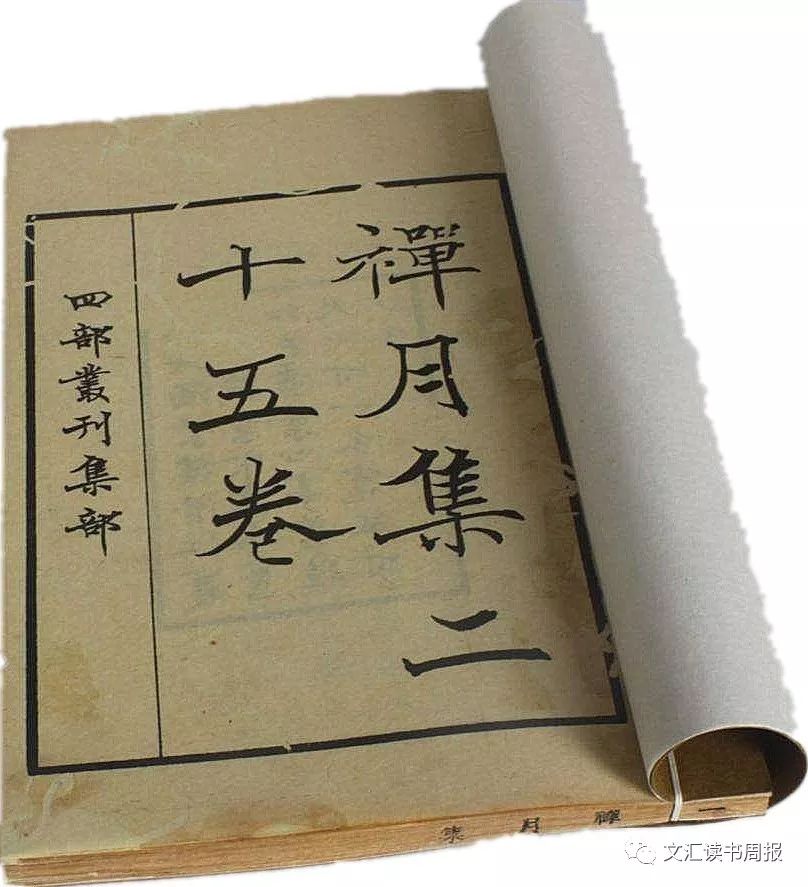 禪月集二
十五卷
四部叢刊集部
禪月集
一
文汇读书周报